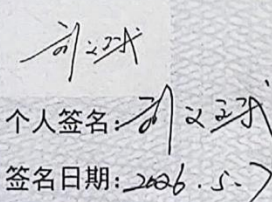 刘文球
个人签名:刘文球
签名日期:2026.5.7